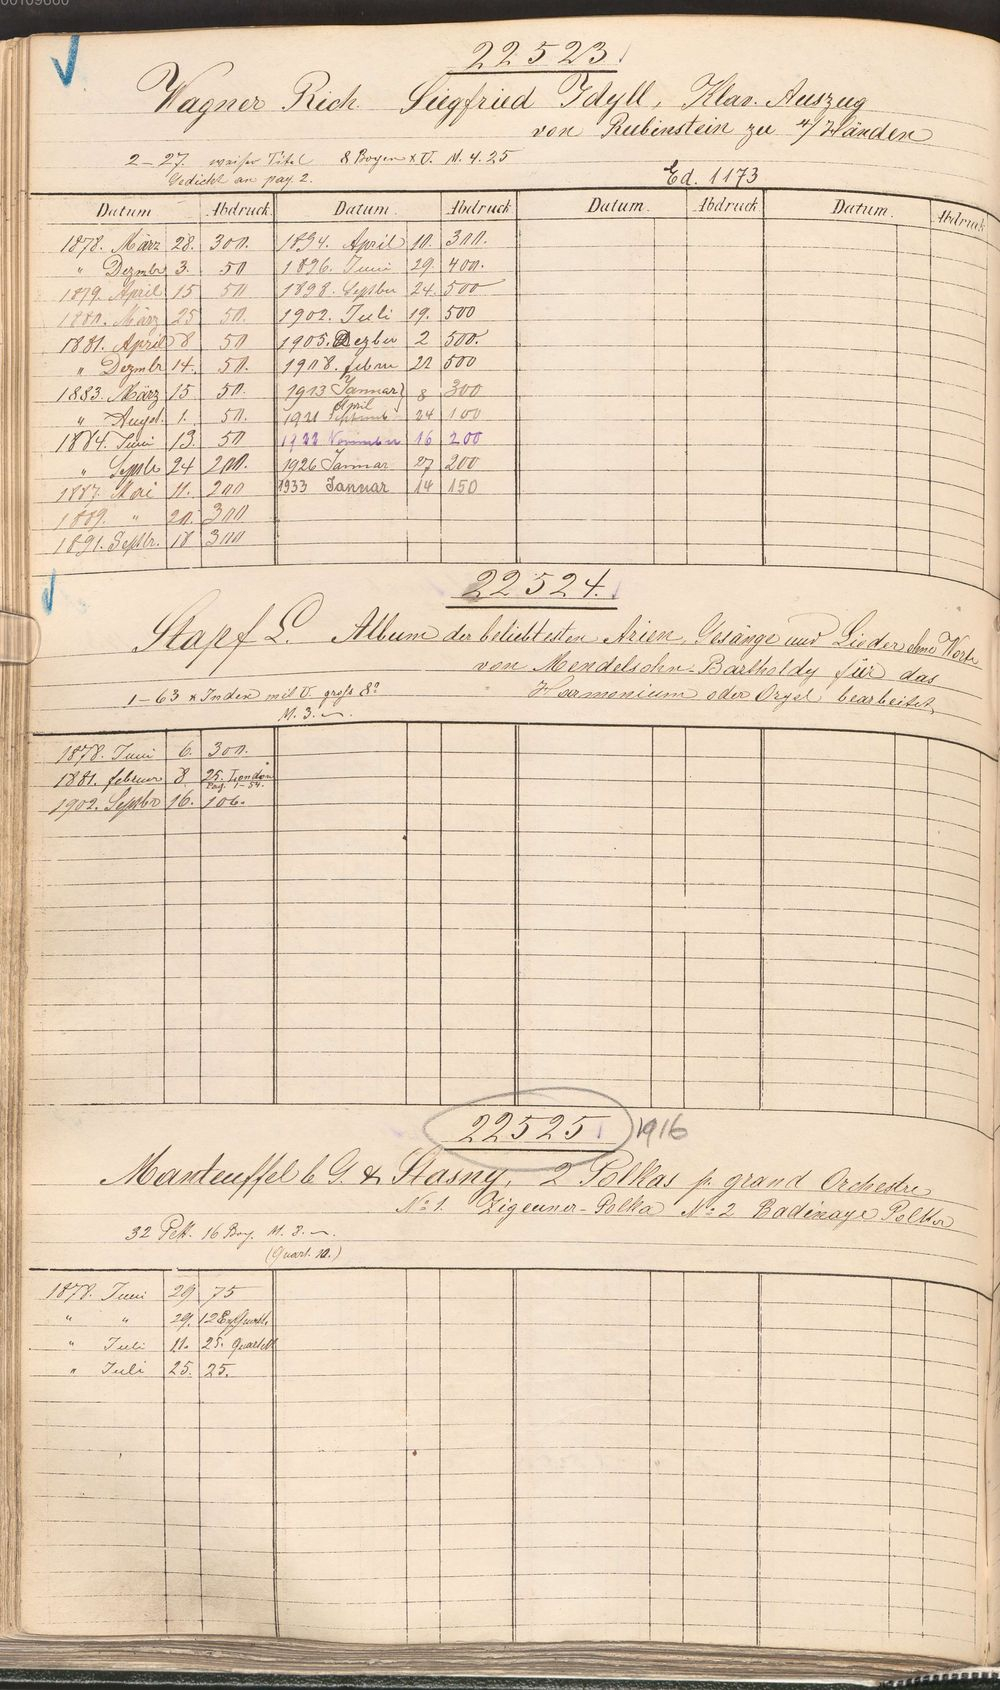 22523
Wagner Rich Siegfried Idyll, Klav. Auszug
von Rubinstein zu 4/ Händen
2–27. weißer Titel 8 Bogen x U. M. 4.25
Gedicht an pag. 2.
Ed. 1173
Datum Abdruck Datum. Abdruck Datum. Abdruck Datum. Abdruck
1878. März 28. 300. 1894. April 10. 300.
" Dezmbr 3. 50 1896. Juni 29. 400.
1879. April 15 50 1898. Septber 24. 500
1880. März 25 50. 1902. Juli 19. 500
1881. April 8 50 1905. Dezber 2 500.
" Dezmbr 14. 50. 1908. febru 22 500
1883. März 15 50. 1913 Januar 8 300
" Augst. 1. 50. 1921 April 24 100
1884. Juni 13. 50 1922 November 16 200
" Septbr 24 200. 1926 Januar 27 200
1887. Mai 11. 200 1933 Januar 14 150
1889. " 20. 300
1891. Septbr. 18 300
22524.
Stapf L. Album der beliebtesten Arien, Gesänge und Lieder ohne Worte
von Mendelsohn-Bartholdy für das
Harmonium oder Orgel bearbeitet,
1–63 x Index mit U. gross 8º
M. 3.–
1878. Juni 6. 300.
1881. februar 8 25. London
Pag. 1–54.
1902. Septbr 16. 106.
22525 1916
Manteuffel b G. & Stasny, 2 Polkas p. grand Orchestre
No 1. Zigeuner-Polka No 2 Badinage Polka
32 Pltt. 16 Bog. M. 3.–
(Quart. 10.)
1878. Juni 29 75
" " 29. 12
" Juli 11. 25. Quartett
" Juli 25. 25.